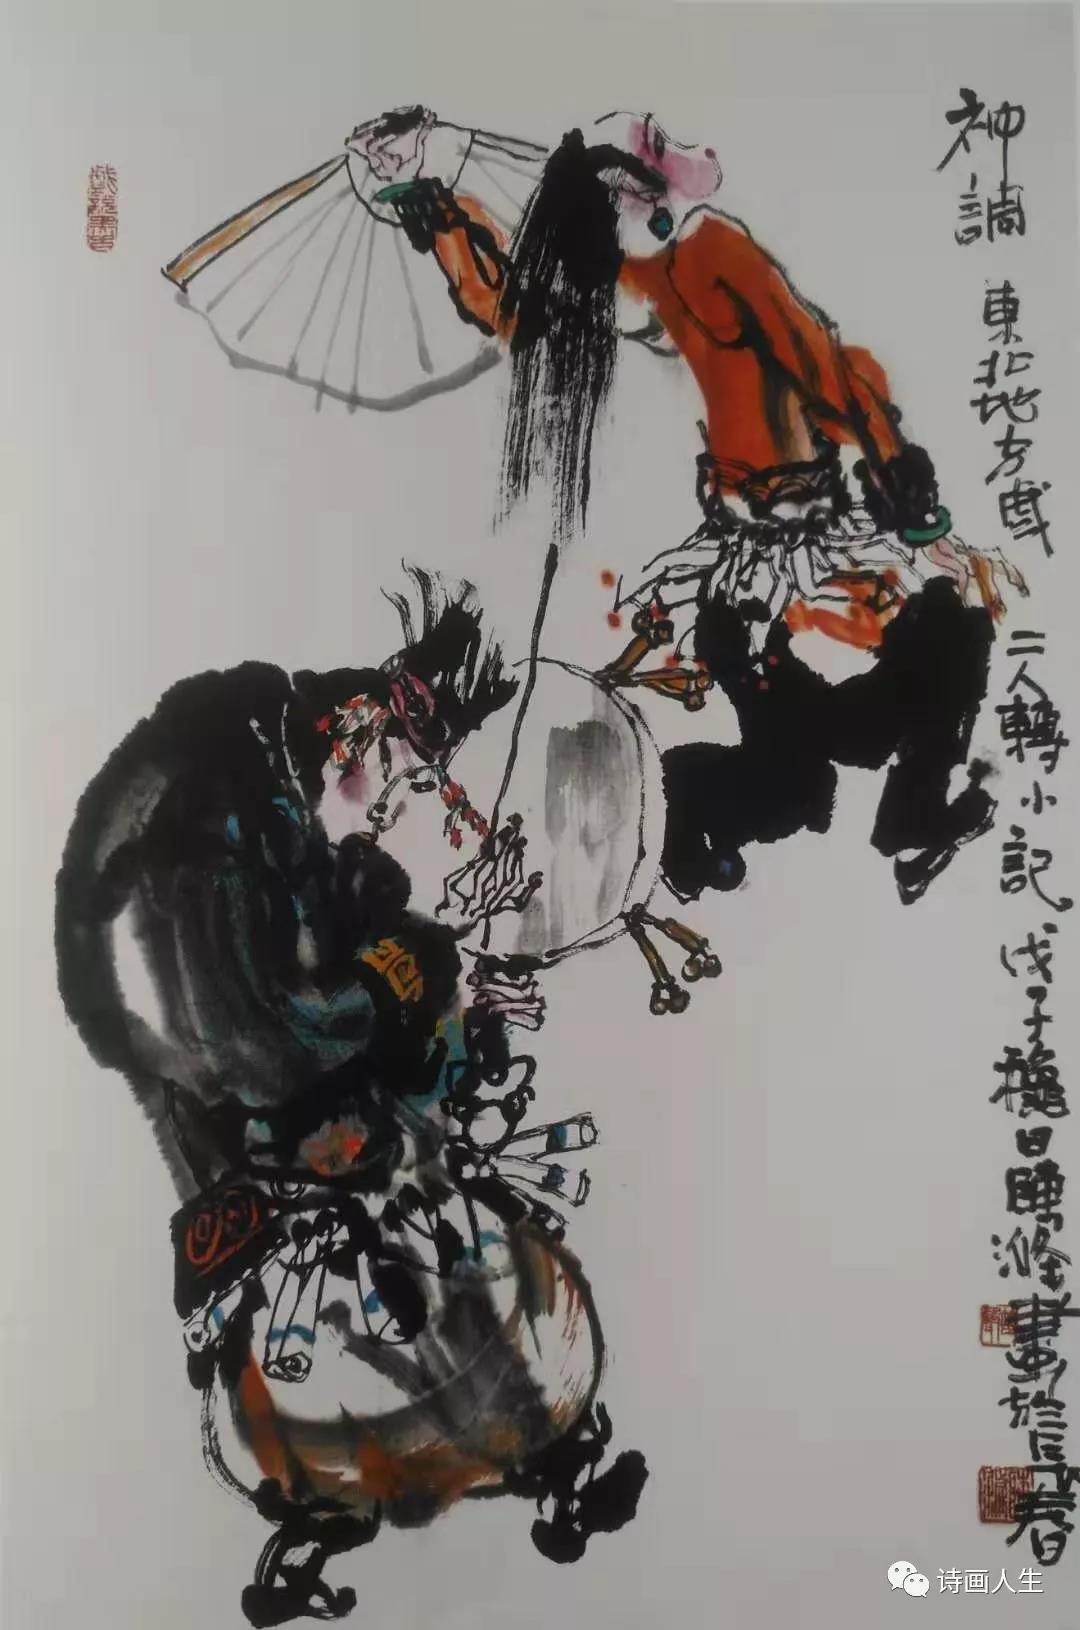 神調
東北地方戲
二人轉小記
戊子穐日曉滌畫於長春
诗画人生